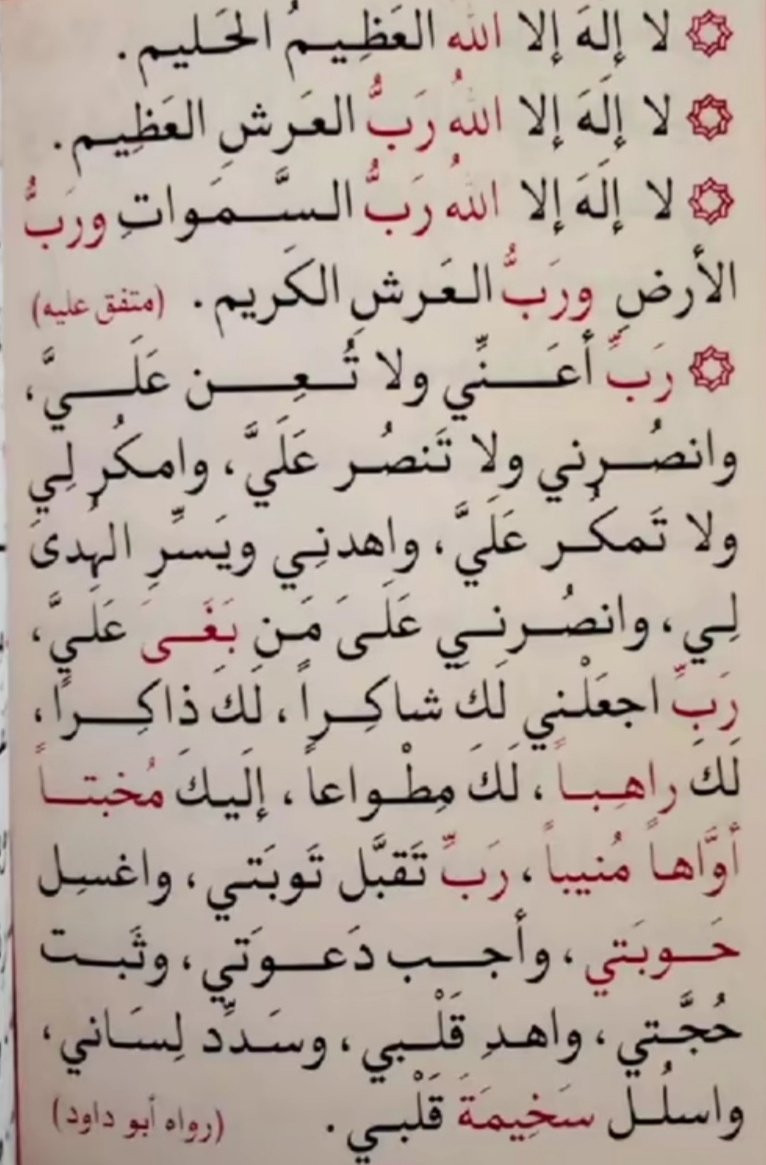 لا إلهَ إلا الله العَظِيمُ الحَليم .
لا إلَهَ إلا اللهُ رَبُّ العَرشِ العَظِيم .
لا إلَهَ إلا اللهُ رَبُّ السَّمَواتِ ورَبُّ
الأرضِ ورَبُّ العَرشِ الكَريم . (متفق عليه)
رَبِّ أعَنِّي ولا تُعِن عَلَيَّ،
وانصُرني ولا تَنصُر عَلَيَّ، وامكُر لِي
ولا تَمكُر عَلَيَّ، واهدنِي ويَسِّرِ الهُدىَ
لِي، وانصُرنِي عَلَىَ مَن بَغَىَ عَلَيَّ،
رَبِّ اجعَلْني لَكَ شاكِراً، لَكَ ذاكِراً،
لَكَ راهِباً، لَكَ مِطْواعاً، إلَيكَ مُخبتاً
أوَّاهاً مُنيباً، رَبِّ تَقبَّل تَوبَتي، واغسِل
حَوبَتي، وأجب دَعوَتي، وثَبت
حُجَّتي، واهدِ قَلْبي، وسَدِّد لِسَاني،
واسلُل سَخِيمَةَ قَلْبي . (رواه أبو داود)